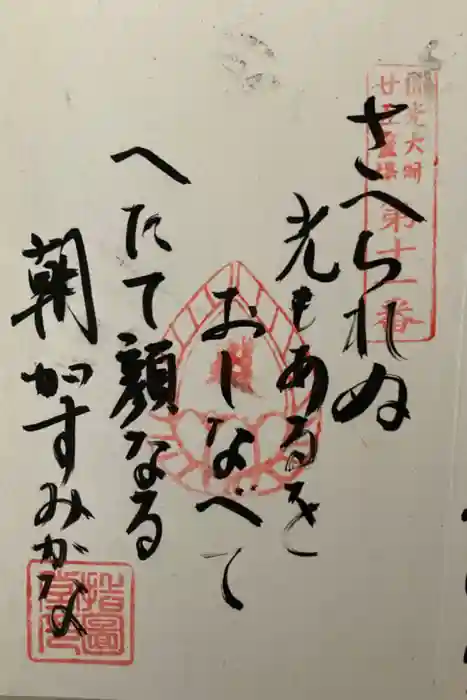 圓光大師
廿五霊場
第十一番
さへられぬ
光もあるを
おしなべて
へたて顔なる
朝かすみかな
指圖
堂印